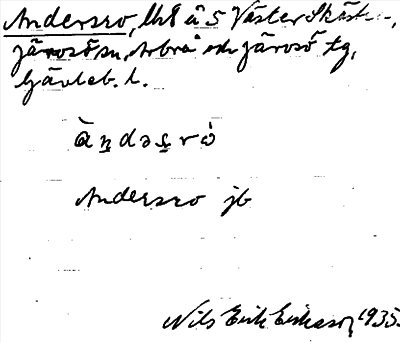 Andersro, lht å 5 Väster Skästra,
järvsö sn, Arbrå och järvsö tg,
Gävleb. l.
àn̠dəs̠rò
Andersro jb
Nils Erik Eriksson 1935.